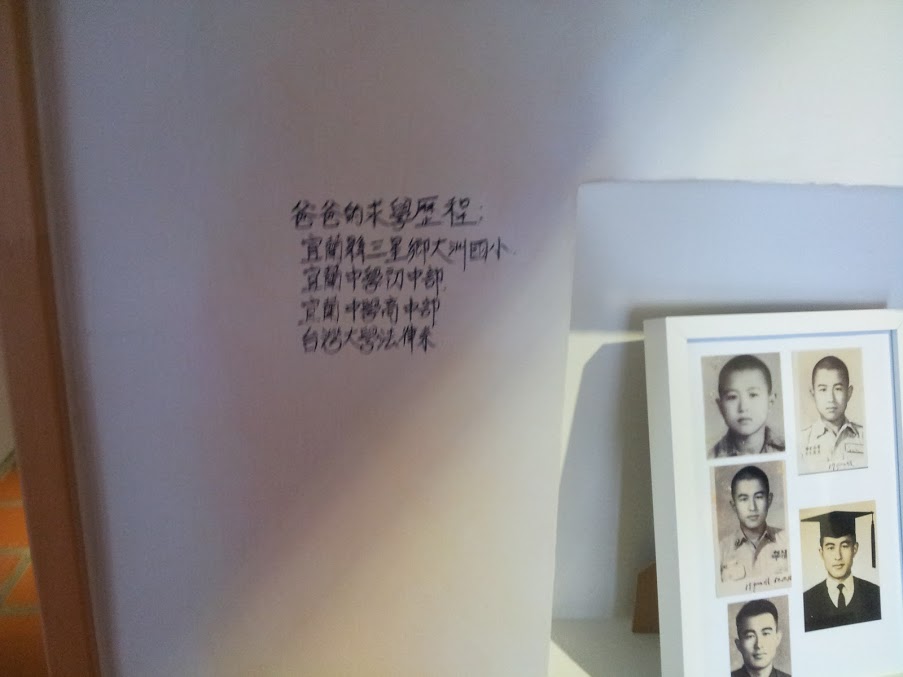 爸爸的求學歷程:
宜蘭縣三星鄉大洲國小.
宜蘭中學初中部
宜蘭中學高中部
台灣大學法律系